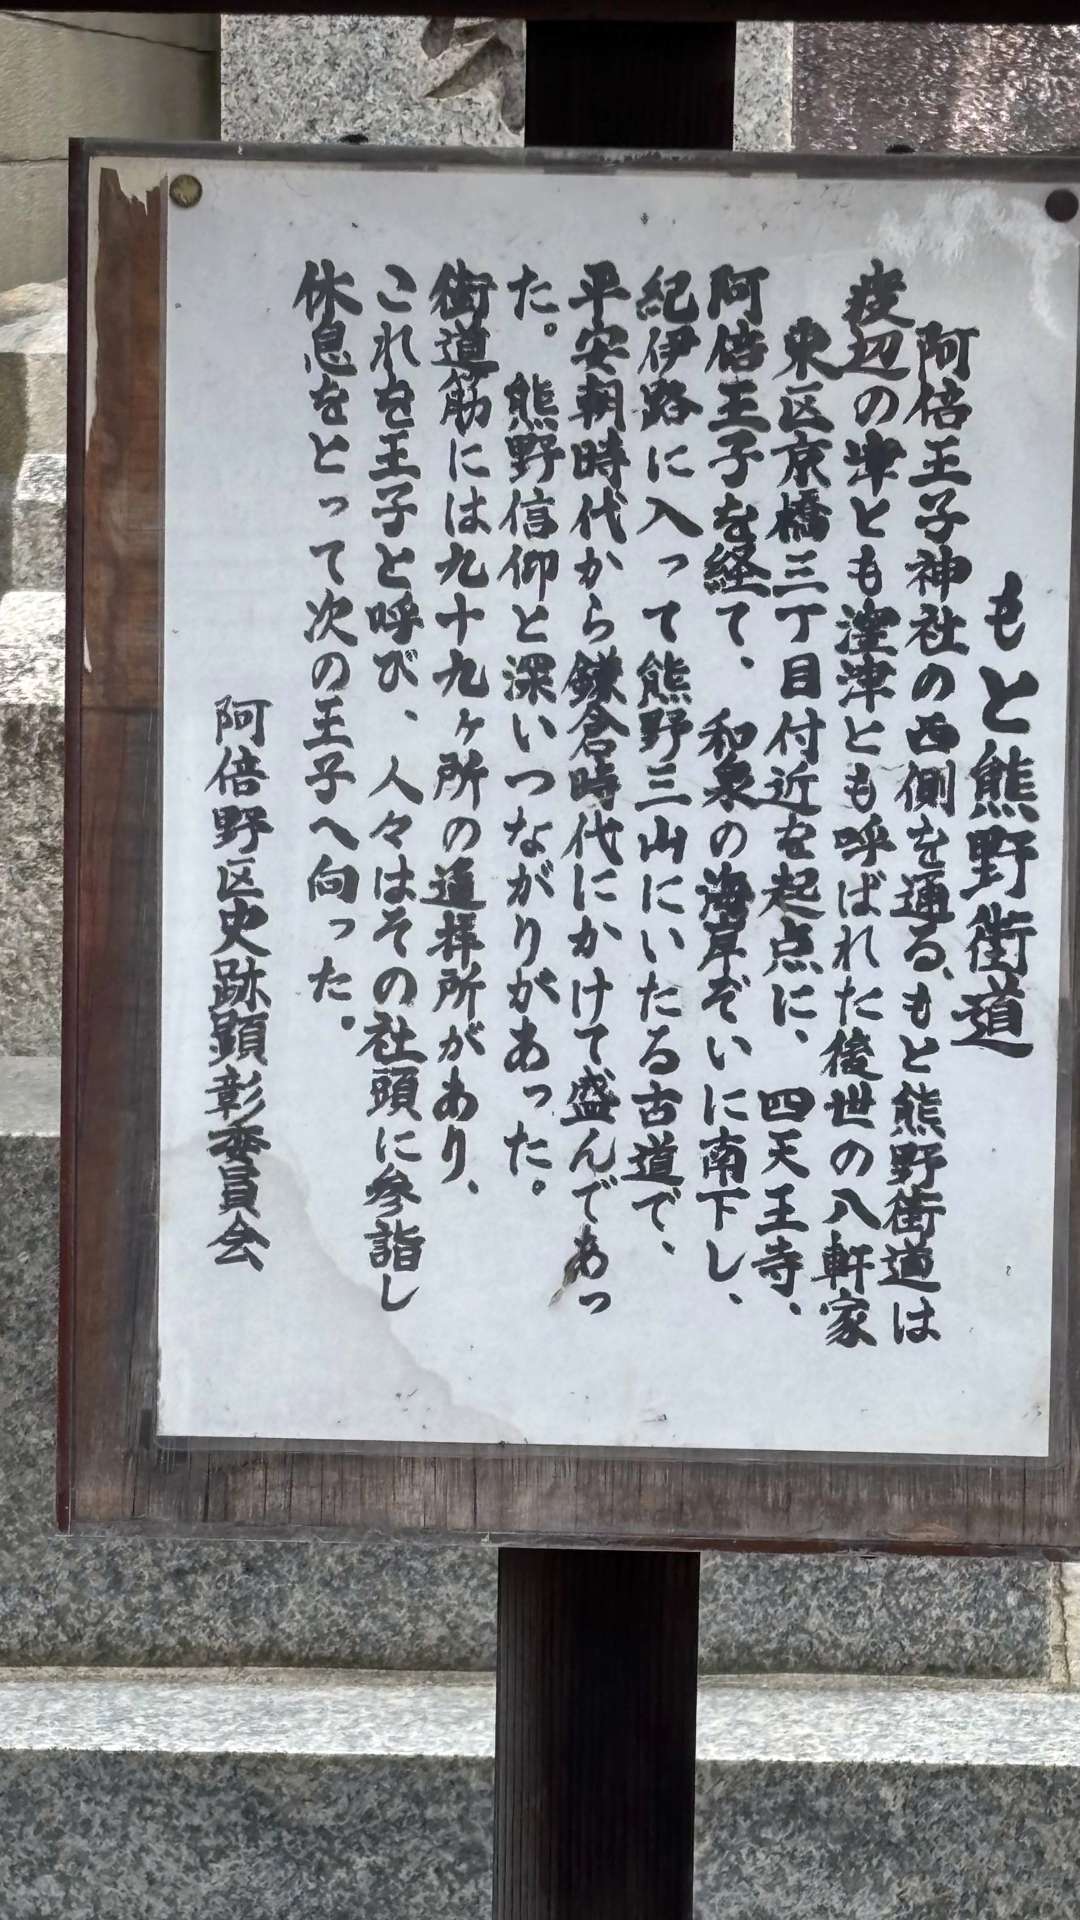 もと熊野街道
阿倍王子神社の西側を通る、もと熊野街道は
渡辺の津とも窪津とも呼ばれた後世の八軒家
東区京橋三丁目付近を起点に、四天王寺、
阿倍王子を経て、和泉の海岸ぞいに南下し、
紀伊路に入って熊野三山にいたる古道で、
平安朝時代から鎌倉時代にかけて盛んであっ
た。熊野信仰と深いつながりがあった。
街道筋には九十九ヶ所の遥拝所があり、
これを王子と呼び、人々はその社頭に参詣し
休息をとって次の王子へ向った。
阿倍野区史跡顕彰委員会